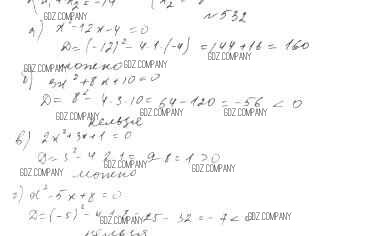 №532
а) x² - 12x - 4 = 0
D = (-12)² - 4·1·(-4) = 144 + 16 = 160
можно
б) 3x² + 8x + 10 = 0
D = 8² - 4·3·10 = 64 - 120 = -56 < 0
нельзя
в) 2x² + 3x + 1 = 0
D = 3² - 4·2·1 = 9 - 8 = 1 > 0
можно
г) x² - 5x + 8 = 0
D = (-5)² - 4·1·8 = 25 - 32 = -7 < 0
нельзя
GDZ.COMPANY
GDZ.COMPANY
GDZ.COMPANY
GDZ.COMPANY
GDZ.COMPANY
GDZ.COMPANY
GDZ.COMPANY
GDZ.COMPANY
GDZ.COMPANY
GDZ.COMPANY
GDZ.COMPANY
GDZ.COMPANY